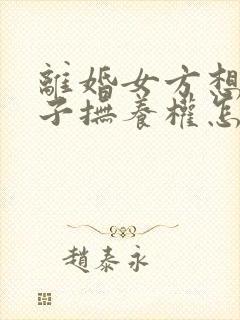 離婚女方想
子撫養權怎
趙泰永